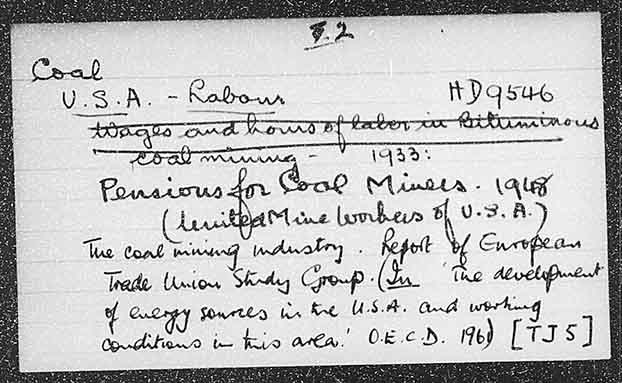 I.2
Coal
U.S.A. - Labour HD9546
Wages and hours of labor in Bituminous
coal mining - 1933:
Pensions for Coal Miners. 1948
(United Mine Workers of U.S.A.)
The coal mining industry. Report of European
Trade Union Study Group. (In 'The development
of energy sources in the U.S.A. and working
conditions in this area.' O.E.C.D. 1961) [TJ5]